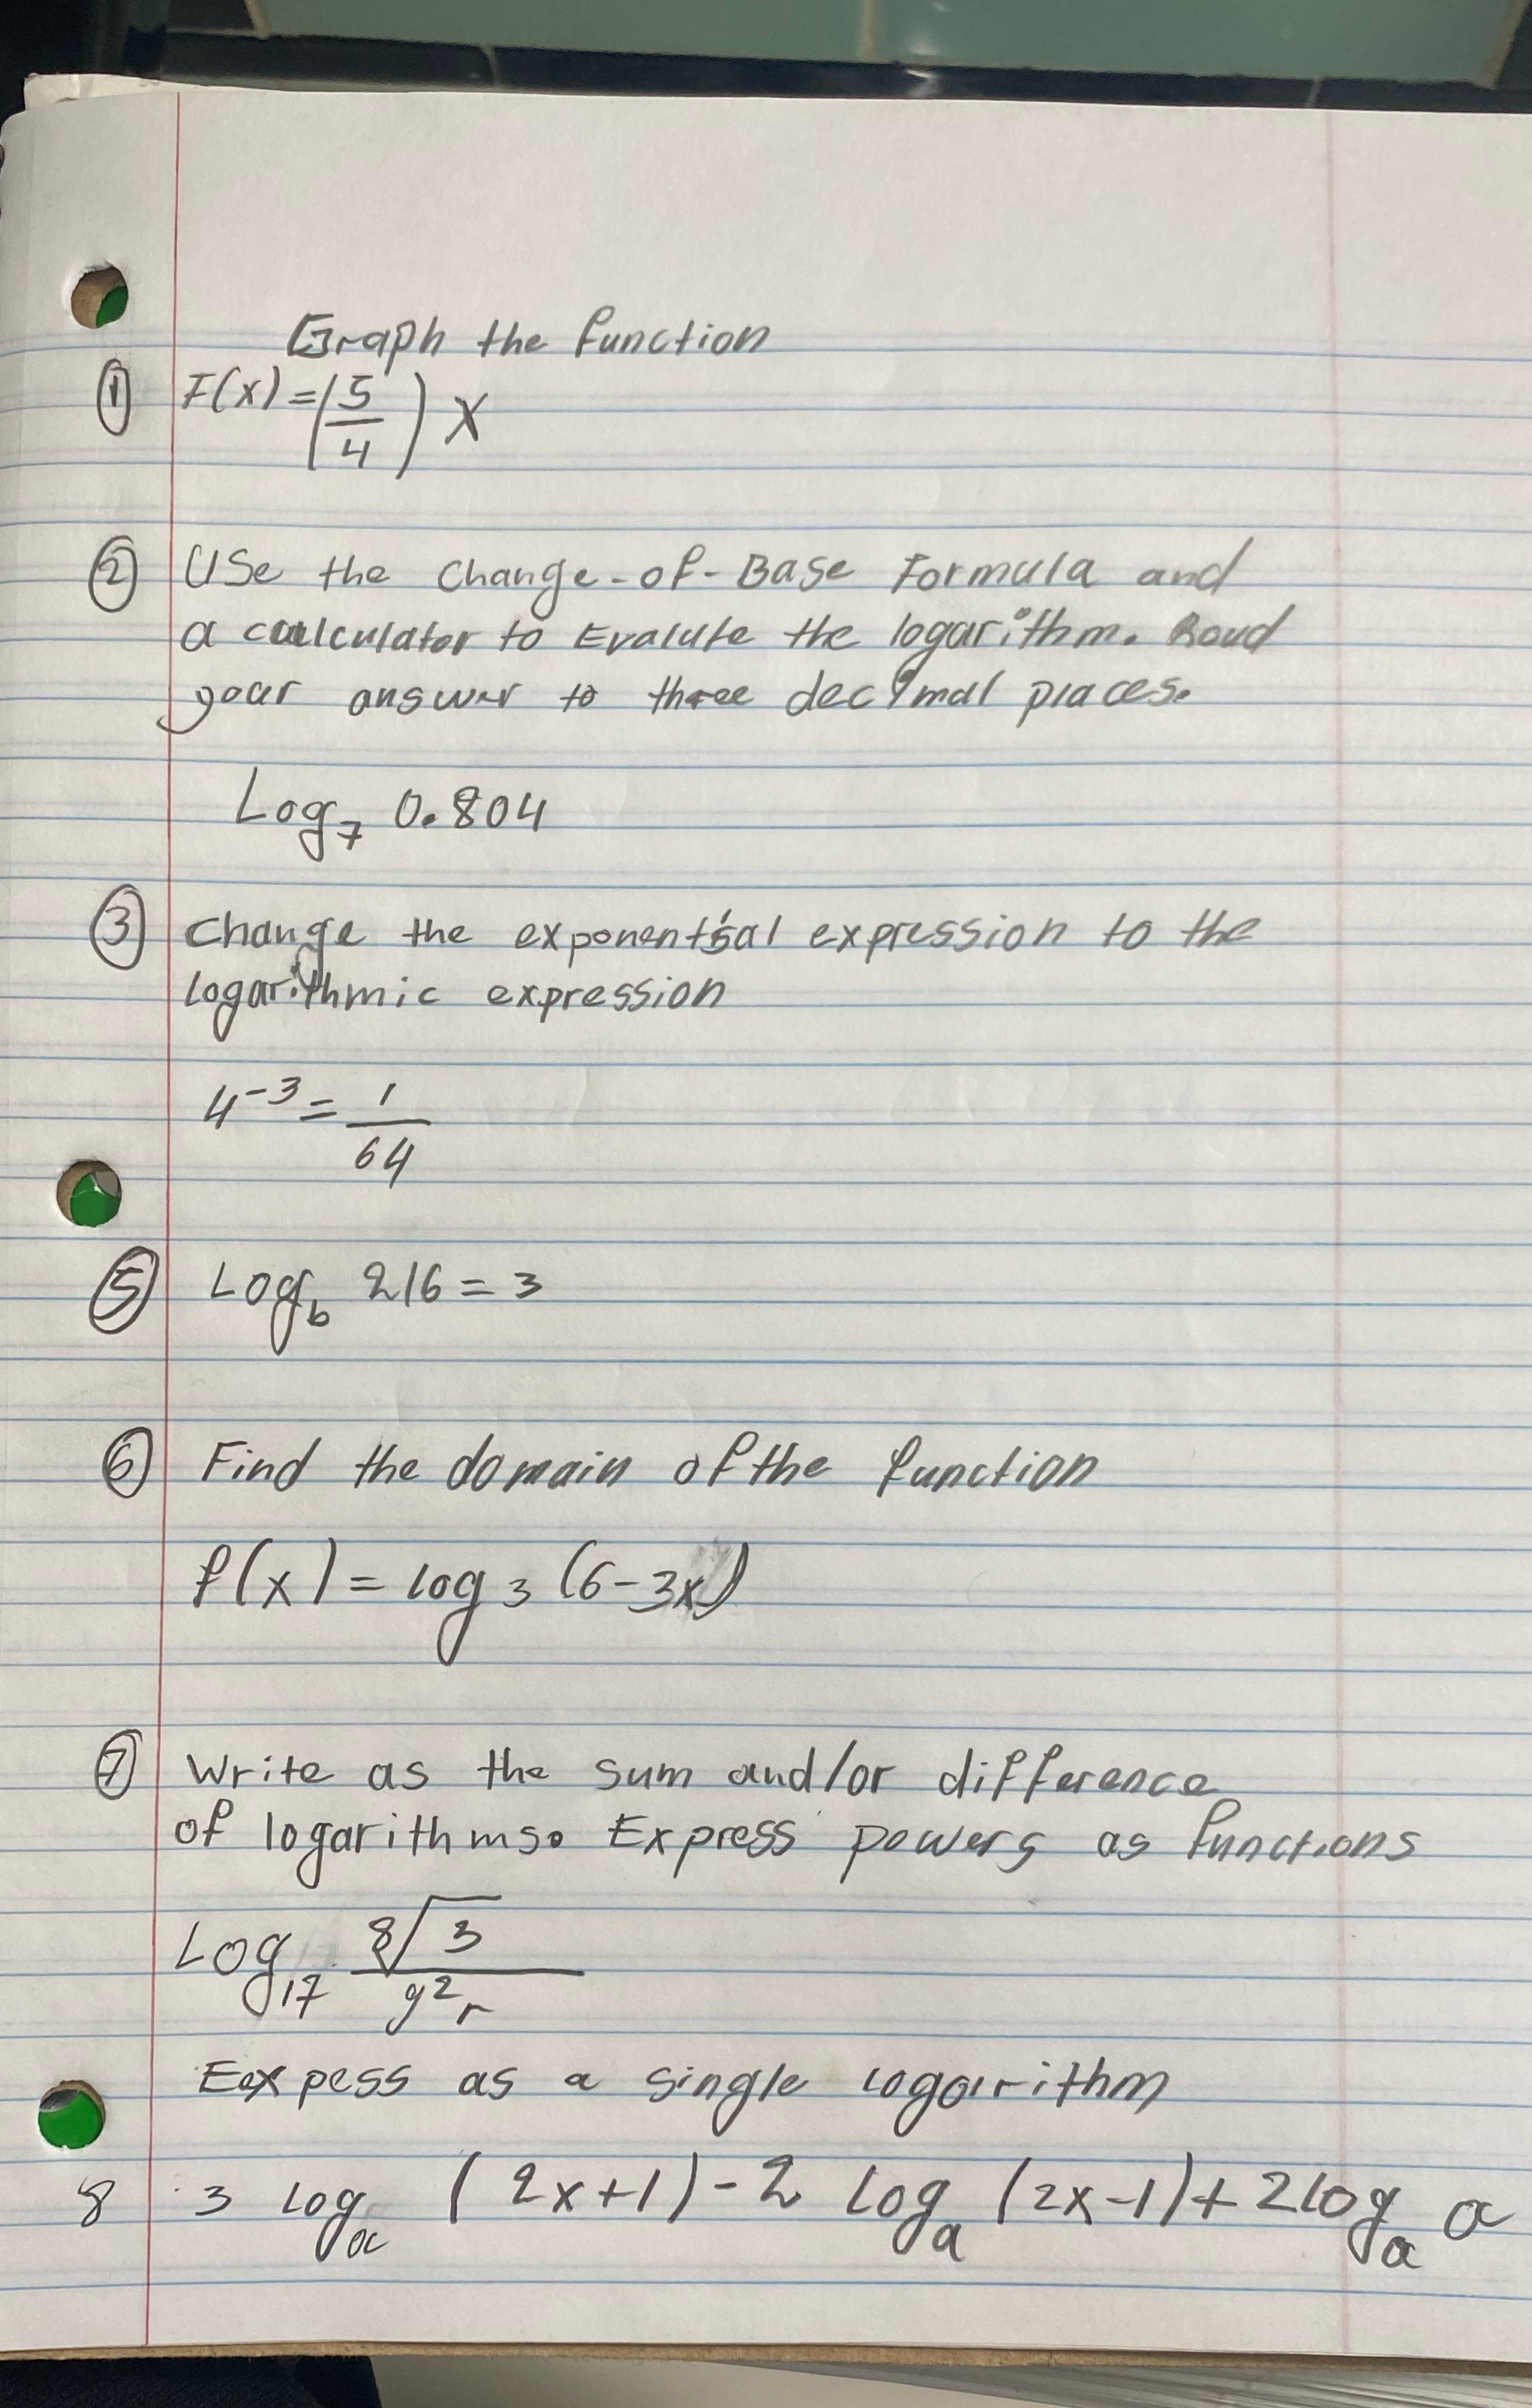 Graph the function
① F(x) = (5/4) x
② Use the change-of-Base Formula and
a calculator to Evalute the logarithm. Roud
your answer to three decimal places.
Log₇ 0.804
③ Change the exponential expression to the
logarithmic expression
4⁻³ = 1/64
⑤ Log_b 216 = 3
⑥ Find the domain of the function
f(x) = log₃ (6-3x)
⑦ Write as the sum and/or difference
of logarithms. Express powers as functions
Log₁₇ ⁸√3 / y²r
Eexpess as a single logarithm
8 3 log_a (2x+1) - 2 log_a (2x-1) + 2 log_a a